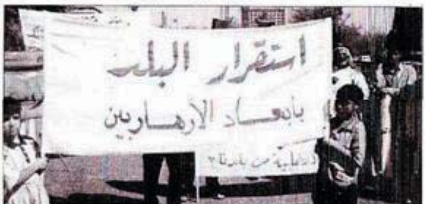 استقرار البلد
بابعاد الارهابيين
من بلدنا؟